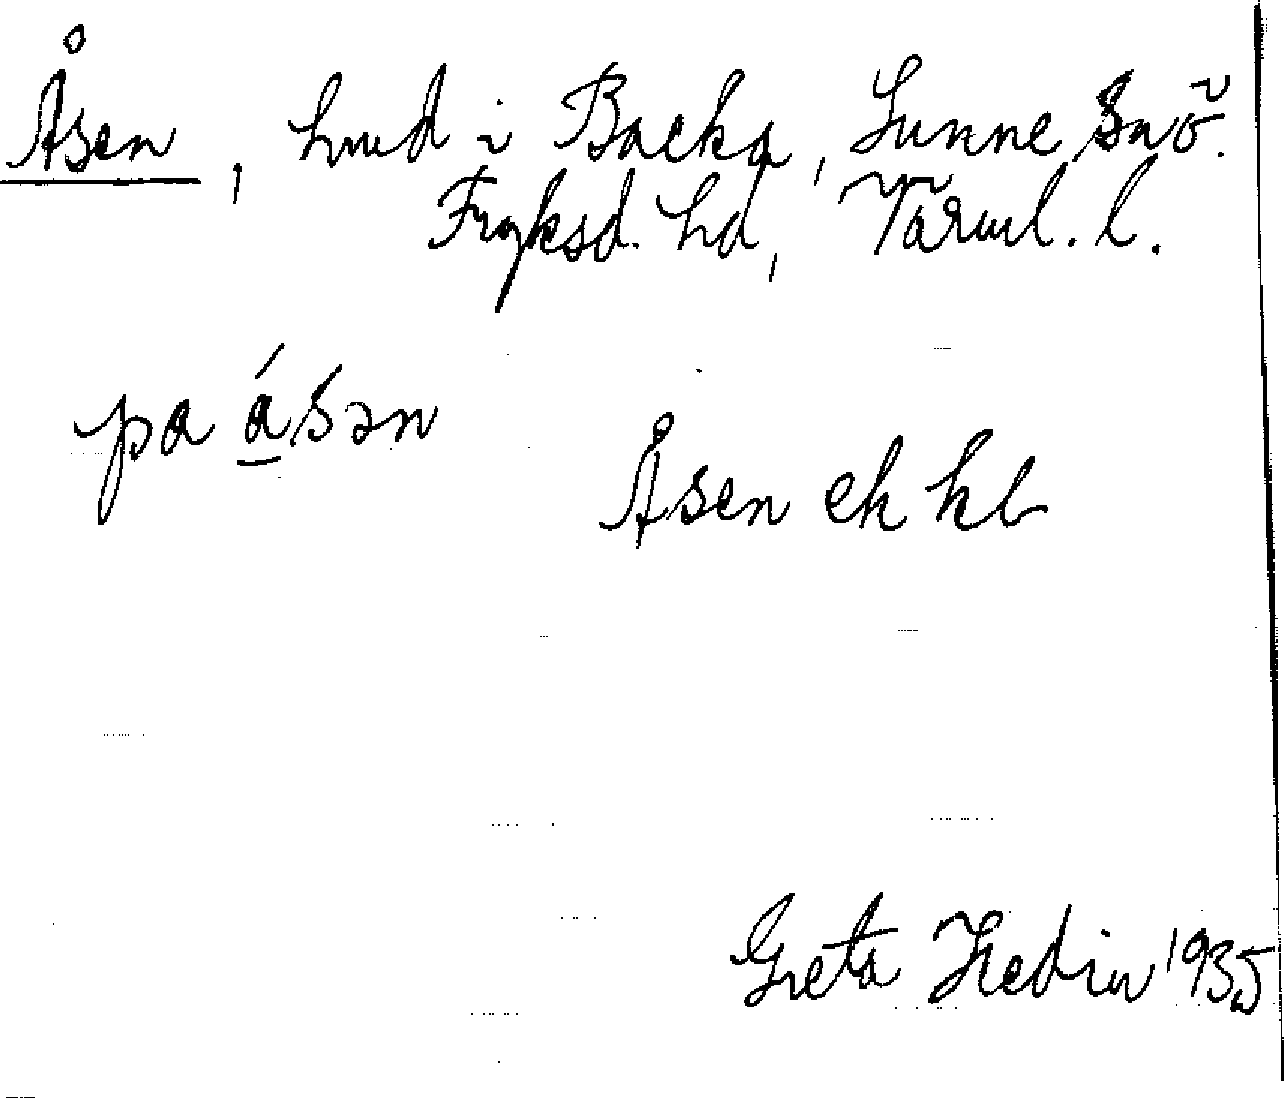 Åsen, hmd i Backa, Sunne snö.
Fryksd. hd, Värml. l.
pa ásən
Åsen ek kb
Greta Hedin 1935